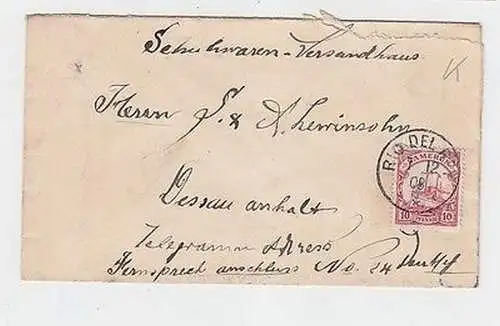 Schuhwaren-Versandhaus
K
Herrn S. & A. Lewinsohn
RIO DEL
KAMERUN
12
08
10 10
Dessau anhalt
Telegramm Adress
Fernsprech anschluss No. 24